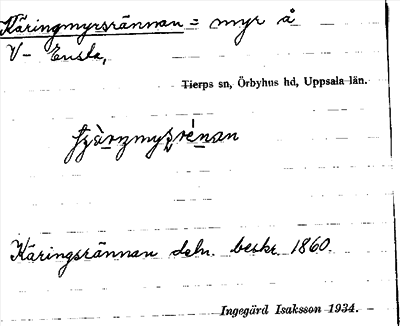 Käringmyrsrännan = myr å
V- Ensla,
Tierps sn, Örbyhus hd, Uppsala län.
Käringsrännan deln. beskr. 1860.
Ingegärd Isaksson 1934.